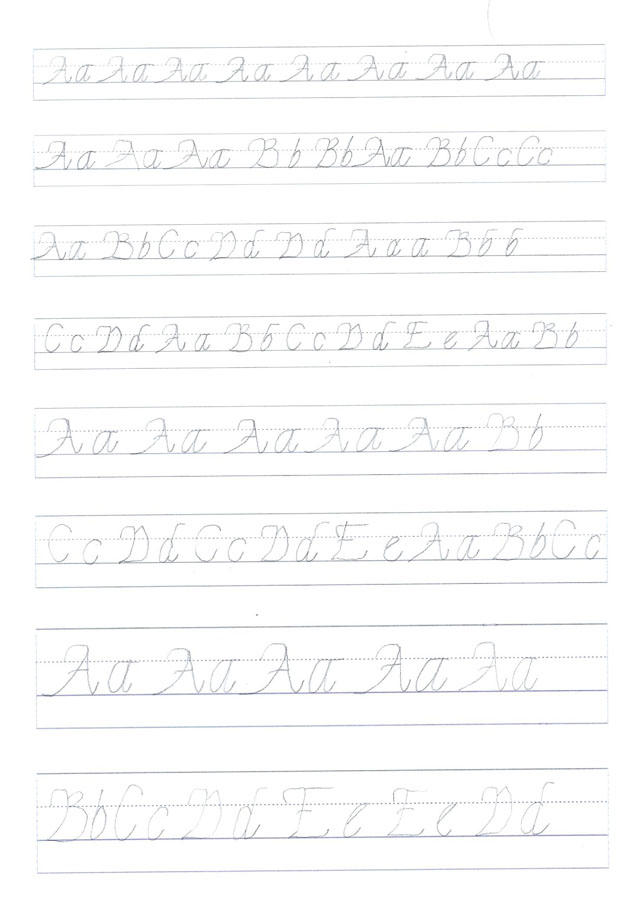 Aa Aa Aa Aa Aa Aa Aa Aa
Aa Aa Aa Bb Bb Aa Bb Cc Cc
Aa Bb Cc Dd Dd Aaa Bbb
Cc Dd Aa Bb Cc Dd Ee Aa Bb
Aa Aa Aa Aa Aa Bb
Cc Dd Cc Dd Ee Aa Bb Cc
Aa Aa Aa Aa Aa
Bb Cc Dd Ee Ee Dd